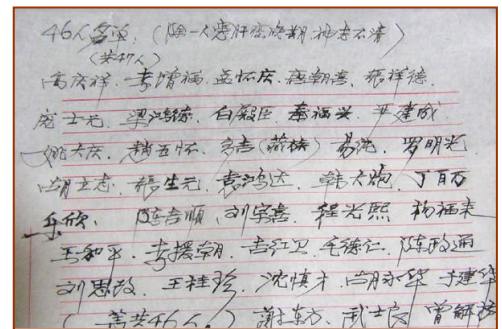 46人名单:(除一人患肝癌晚期,神志不清)
(共47人)
高庆祥、李增福、孟怀庆、唐朝喜、张祥德、
庞士元、梁鸿德、白殿臣、秦福兴、尹建成
姚大庆、赵五怀、易沆、罗明光
胡立志、张生元、袁鸿达、韩大炮、丁百万
乐欣、陈吉顺、刘宝喜、程光熙、杨福来
王和平、李援朝、吉红卫、毛德仁、陈政通
刘思政、王桂珍、沈慎才、肖永华、于建华
(共46人。)谢东方、武士良、曾解放